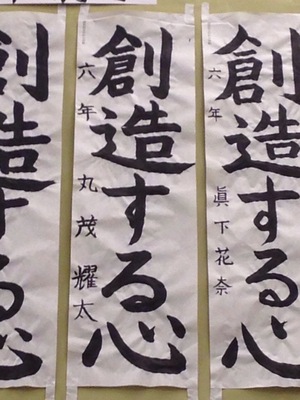 創造する心
六年 眞下花奈
創造する心
六年 丸茂耀太
創造する心